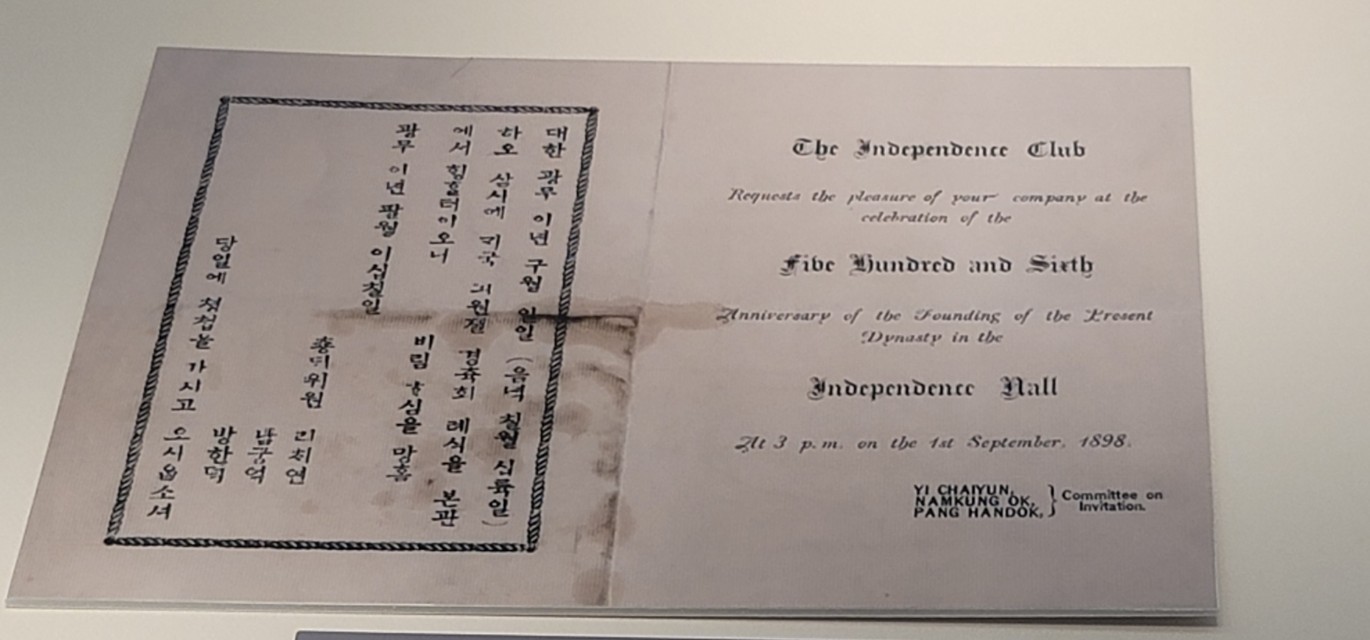 대한 광무 이년 구월 일일 (음녁 칠월 십륙일)
하오 삼시에 기국 긔원졀 경츅회 례식을 본관
에서 힝홀터이오니 비림 심을 망흠
광무 이년 팔월 이십칠일
춍디위원 리최연
남궁억
방한덕
당일에 쳥쳡을 가시고 오시옵소셔
The Independence Club
Requests the pleasure of your company at the
celebration of the
Five Hundred and Sixth
Anniversary of the Founding of the Present
Dynasty in the
Independence Hall
At 3 p.m. on the 1st September, 1898.
YI CHAIYUN,
NAMKUNG OK,
PANG HANDOK,
Committee on
Invitation.